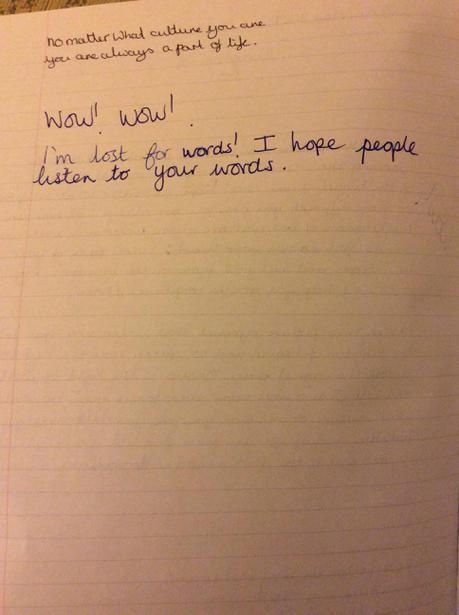 no matter what culture you are
you are always a part of life.
Wow! Wow!
I'm lost for words! I hope people
listen to your words.